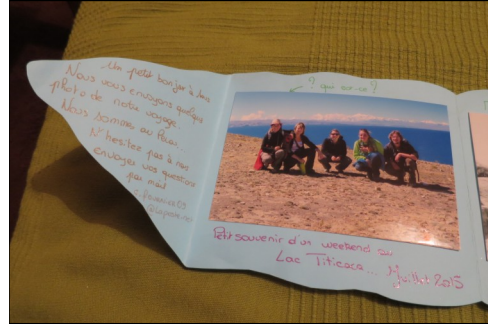 Un petit bonjour à tous
Nous vous envoyons quelques
photo de notre voyage.
Nous sommes au Pérou...
N'hesitez pas à nous
envoyer vos questions
par mail
? qui est-ce ?
Petit souvenir d'un weekend au
Lac Titicaca... Juillet 2015